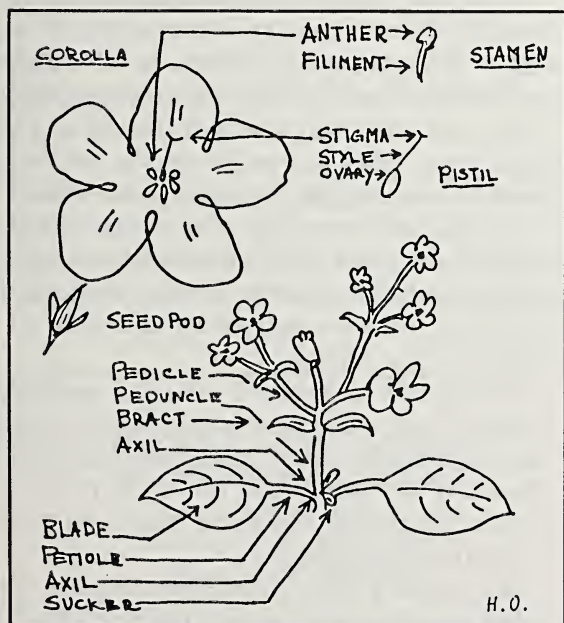 COROLLA
ANTHER
FILIMENT
STAMEN
STIGMA
STYLE
OVARY
PISTIL
SEED POD
PEDICLE
PEDUNCLE
BRACT
AXIL
BLADE
PETIOLE
AXIL
SUCKER
H.O.